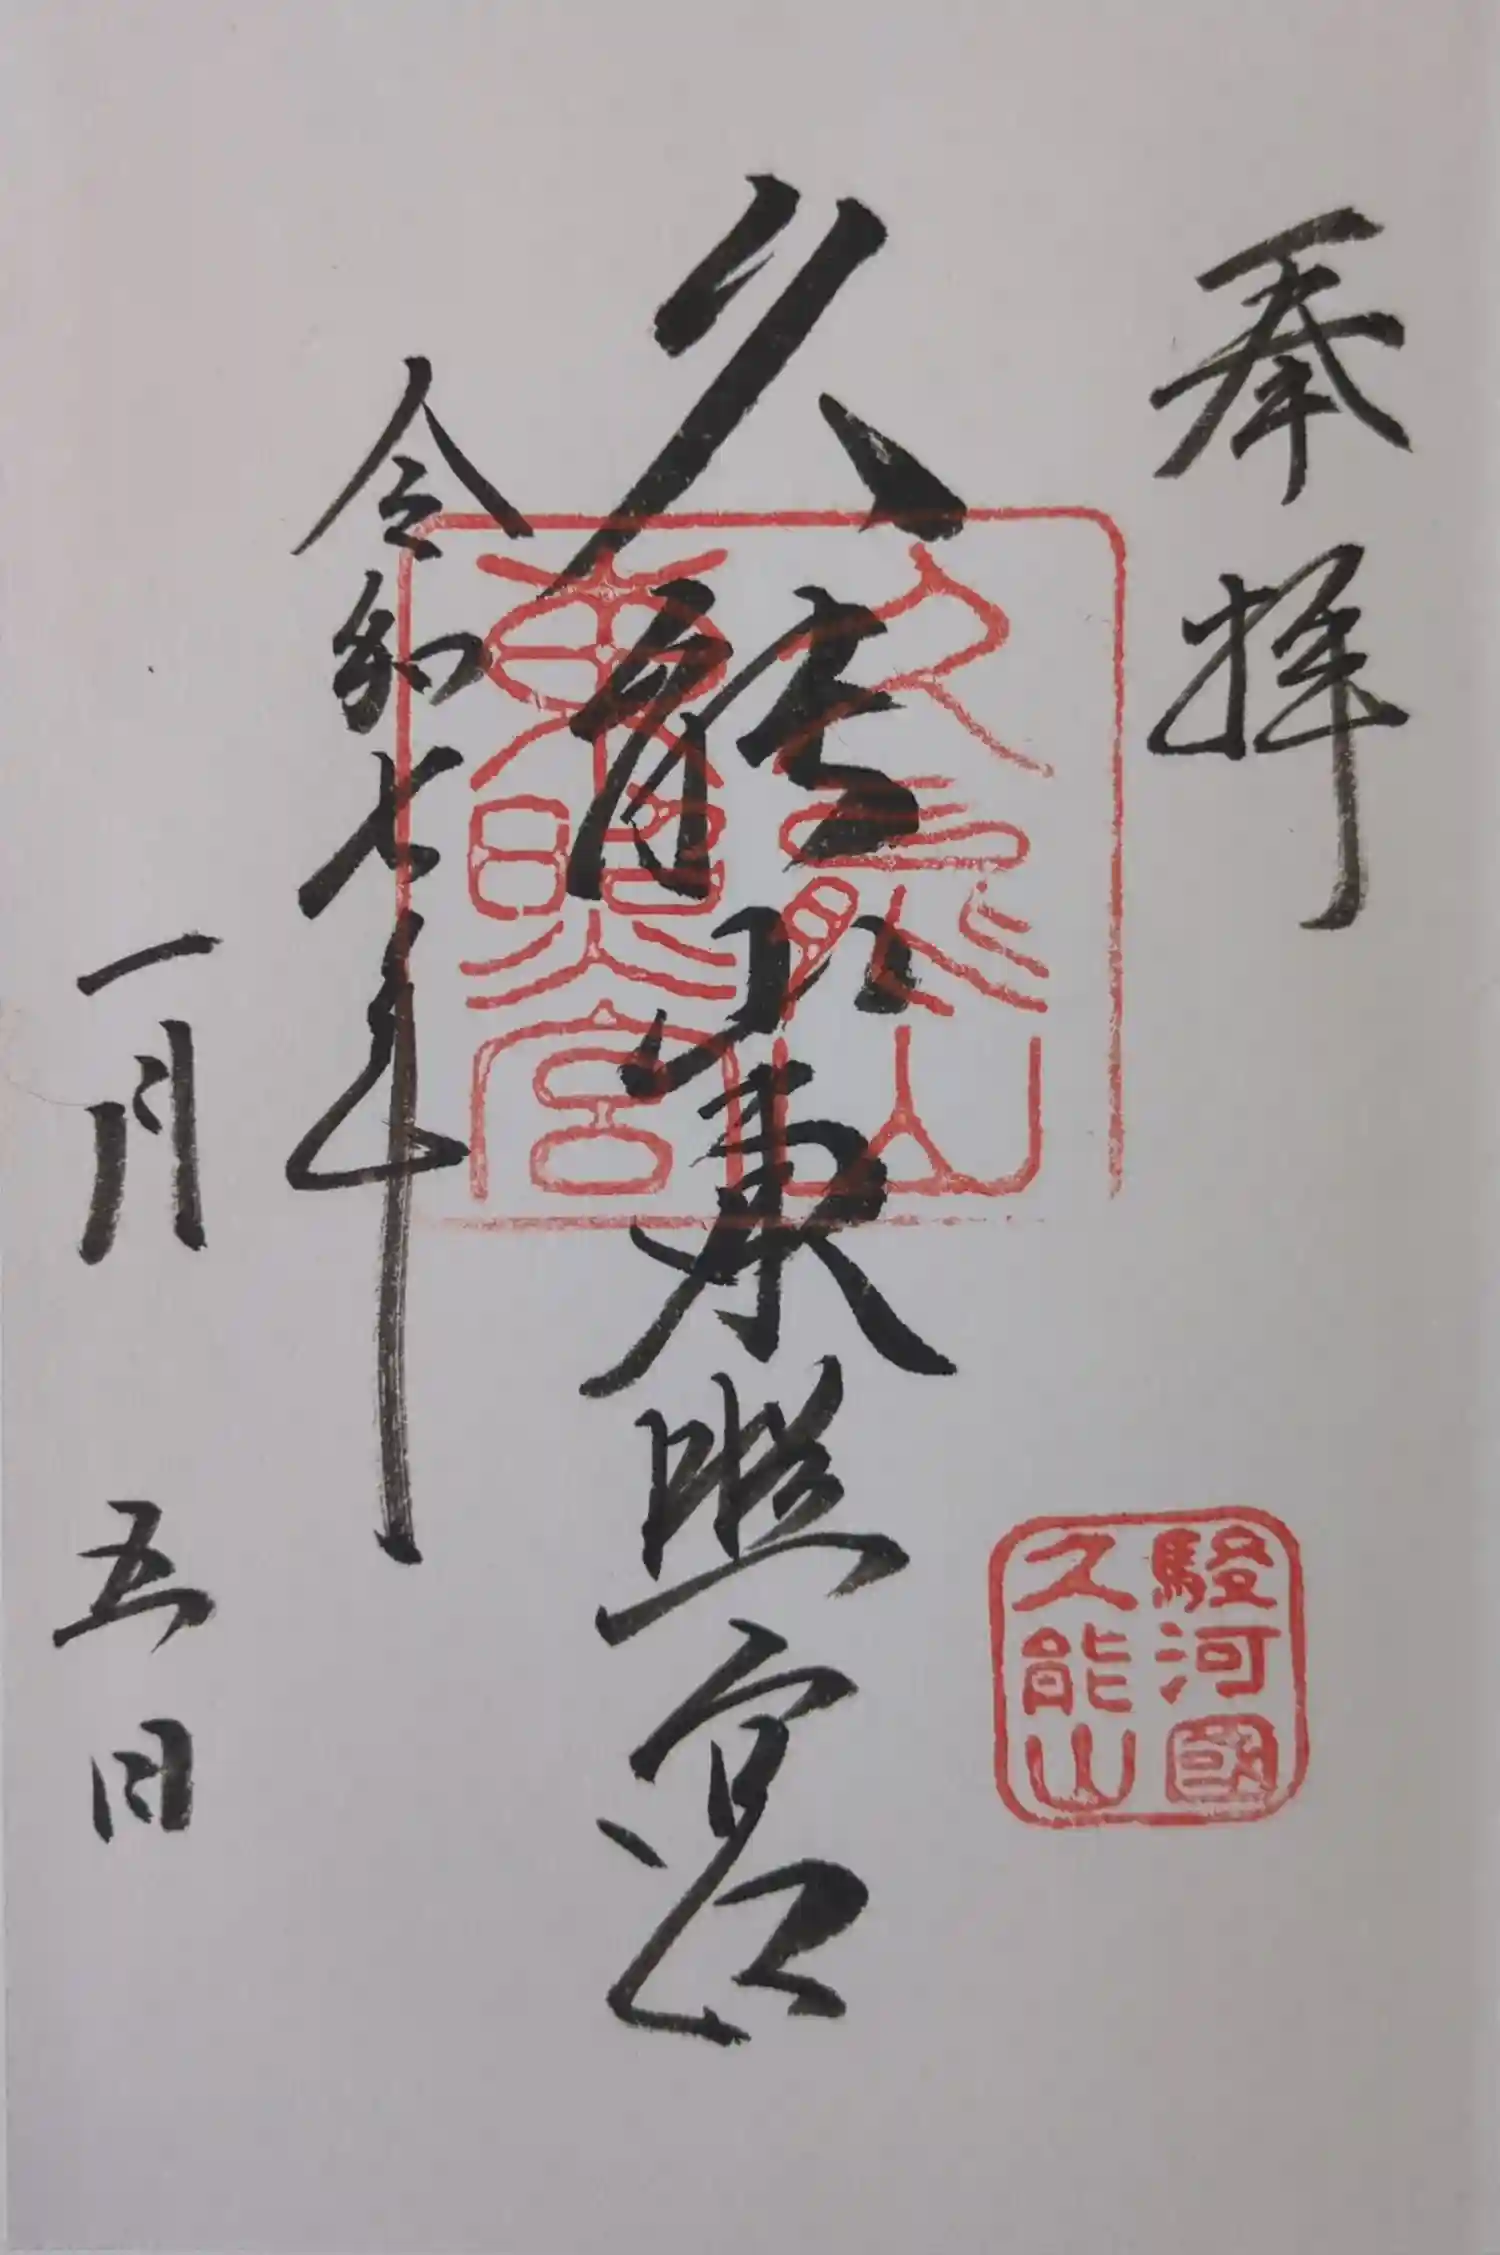 奉拝
駿河國
久能山
久能山東照宮
久能山
東照宮
令和七年
一月五日